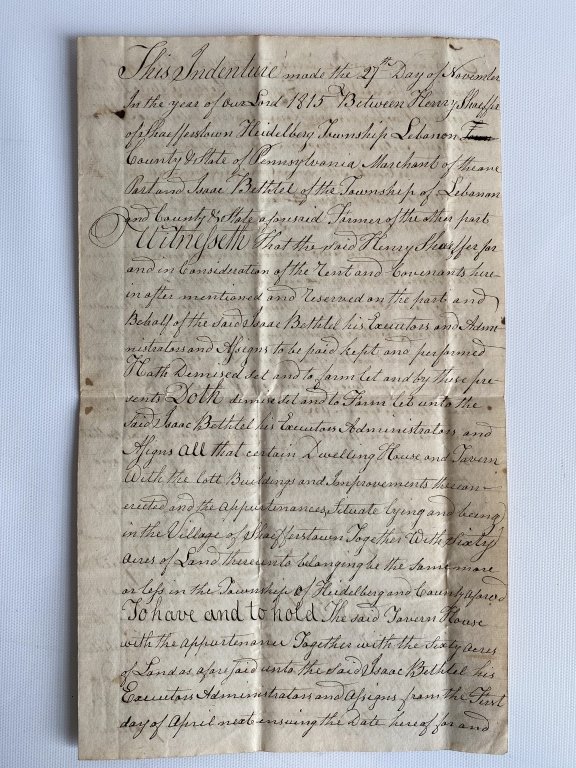 This Indenture made the 27th Day of November
In the year of our Lord 1815 Between Henry Shaeffer
of Shaefferstown Heidelberg Township Lebanon
County & State of Pennsylvania Merchant of the one
Part and Isaac Bethtel of the Township of Lebanon
and County & State aforesaid Farmer of the other part
Witnesseth That the said Henry Shaeffer for
and in Consideration of the Rent and Covenants here
in after mentioned and reserved on the part and
Behalf of the said Isaac Bethtel his Executors and Adm
nistrators and Assigns to be paid kept and performed
Hath Demised set and to farm let and by these pre
sents Doth demise set and to Farm let unto the
Said Isaac Bethtel his Executors Administrators and
Assigns all that certain Dwelling House and Tavern
With the Lott Buildings and Improvements thereon
erected and the Appurtenances Situate lying and being
in the Village of Shaefferstown Together With Sixty
acres of Land thereunto belonging be the same more
or less in the Township of Heidelberg and County afores'd
To have and to hold The said Tavern House
with the Appurtenance Together with the Sixty acres
of Land as aforesaid unto the said Isaac Bethtel his
Executors Administrators and Assigns from the First
day of April next ensuing the Date hereof for and